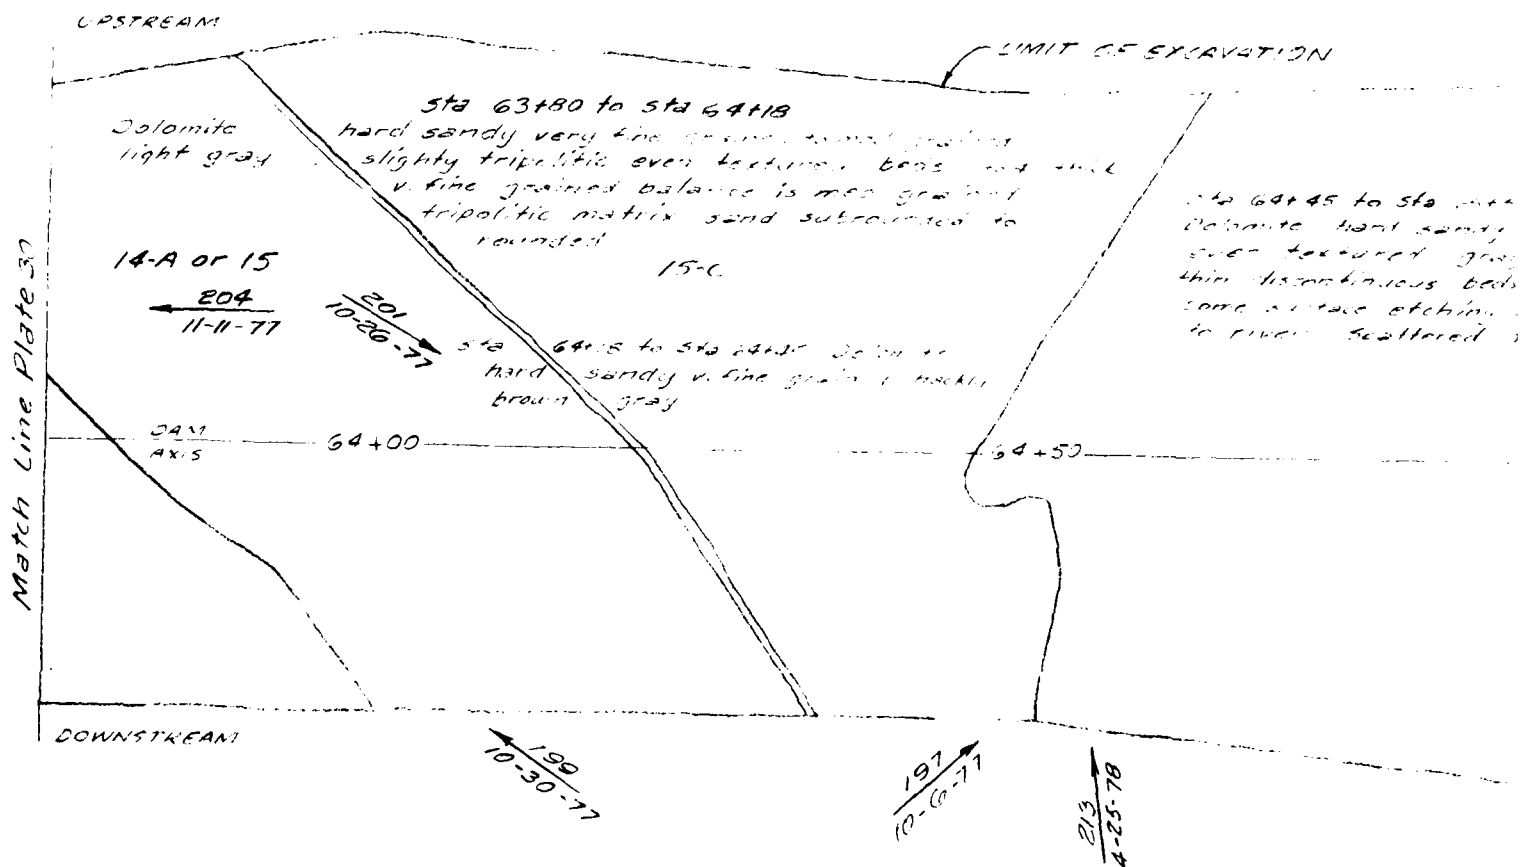 UPSTREAM
LIMIT OF EXCAVATION
Dolomite
light gray
sta 63+80 to sta 64+18
hard sandy very fine
slighty tripolitic even textured beds thick
v. fine grained balance is med grained
tripolitic matrix sand subrounded to
rounded
15-C
14-A or 15
204
11-11-77
201
10-26-77
sta 64+18 to sta 64+45
hard sandy v. fine grain hackly
brown gray
sta 64+45 to sta
Dolomite hard sandy
even textured gray
thin discontinuous beds
some surface etching
to river scattered
Match Line Plate 30
DAM
AXIS
64+00
64+50
DOWNSTREAM
199
10-30-77
197
10-6-77
213
4-25-78